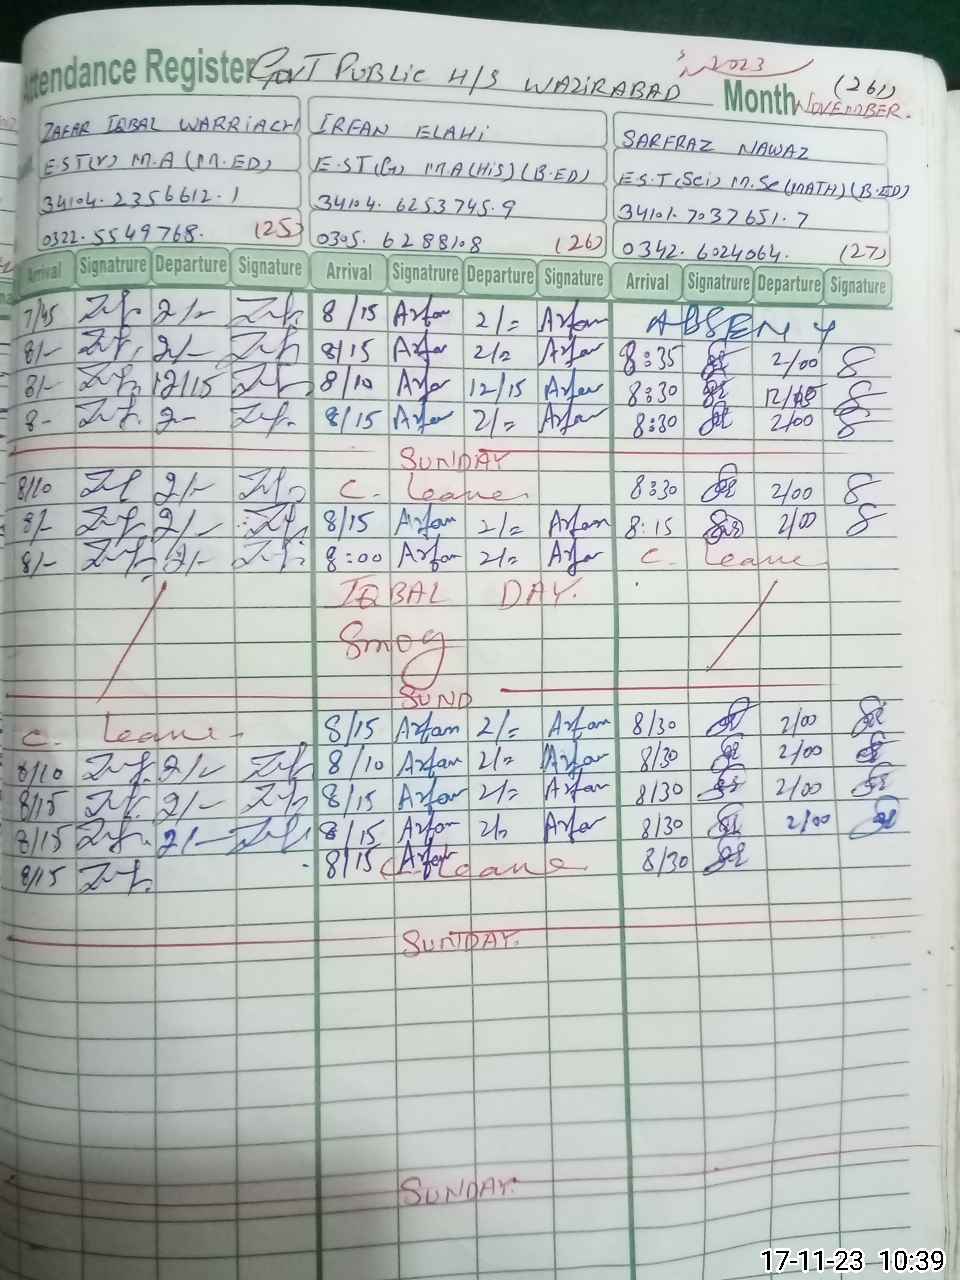 Attendance Register GOVT PUBLIC H/S WAZIRABAD 2023 Month NOVEMBER. (261)
ZAFAR IQBAL WARRIACH IRFAN ELAHI SARFRAZ NAWAZ
E.ST(V) M.A (M.ED) E.ST(G) M.A(HiS)(B.ED) E.S.T(Sci) M.Sc(MATH)(B.ED)
34104.2356612.1 34104.6253745.9 34101.7037651.7
0322.5549768. (25) 0305.6288108 (26) 0342.6024064. (27)
Arrival Signatrure Departure Signature Arrival Signatrure Departure Signature Arrival Signatrure Departure Signature
7/45 2/- 8/15 Arfan 2/= Arfan ABSENT
8/- 2/- 8/15 Arfan 2/= Arfan 8:35 2/00
8/- 12/15 8/10 Arfan 12/15 Arfan 8:30
8- 2- 8/15 Arfan 2/= Arfan 8:30 2/00
SUNDAY
8/10 2/- C. leave 8:30 2/00
8/- 2/- 8/15 Arfan 2/= Arfan 8:15 2/00
8/- 2/- 8:00 Arfan 2/= Arfan C. leave
IQBAL DAY.
Smog
SUND
C. leave 8/15 Arfan 2/= Arfan 8/30 2/00
8/10 2/- 8/10 Arfan 2/= Arfan 8/30 2/00
8/15 2/- 8/15 Arfan 2/= Arfan 8/30 2/00
8/15 2/- 8/15 Arfan 2/= Arfan 8/30 2/00
8/15 8/15 Arfan C. leave 8/30
SUNDAY.
SUNDAY.
17-11-23 10:39